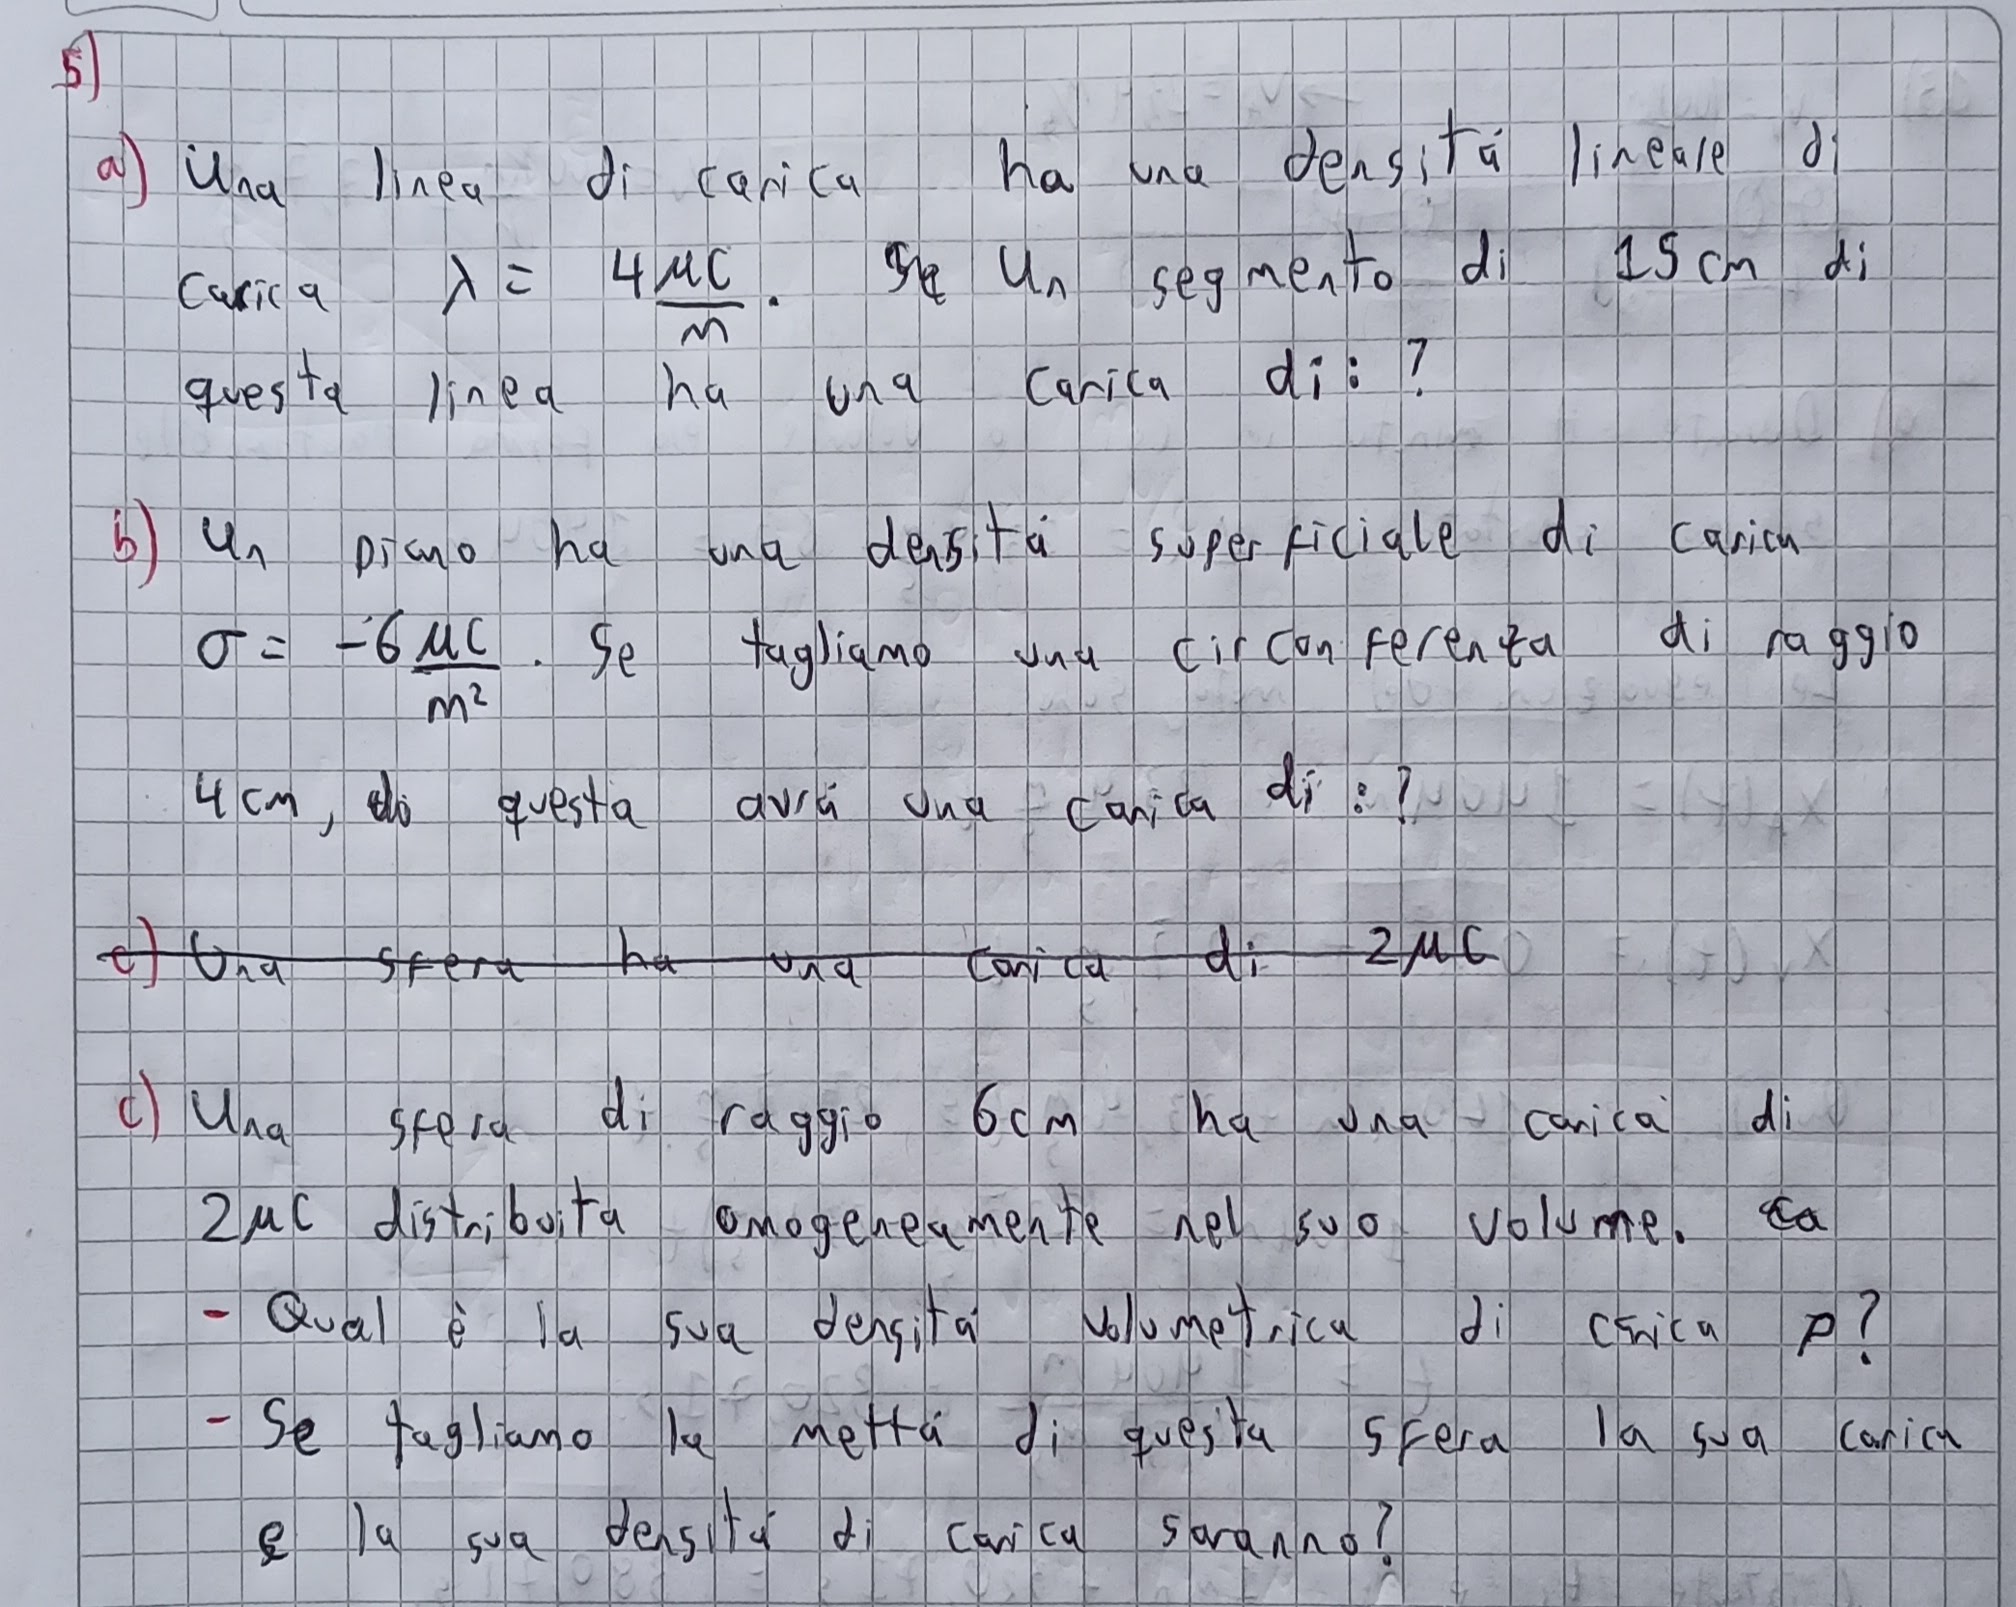 5)
a) Una linea di carica ha una densitá lineale di
carica λ = 4 μC/m. Un segmento di 15 cm di
questa linea ha una carica di: ?
b) Un piano ha una densitá superficiale di carica
σ = -6 μC/m². Se tagliamo una circonferenza di raggio
4 cm, questa avrá una carica di: ?
c) Una sfera ha una carica di 2 μC
c) Una sfera di raggio 6 cm ha una carica di
2 μC distribuita omogeneamente nel suo volume.
- Qual è la sua densitá volumetrica di carica ρ?
- Se tagliamo la mettá di questa sfera la sua carica
e la sua densitá di carica saranno?